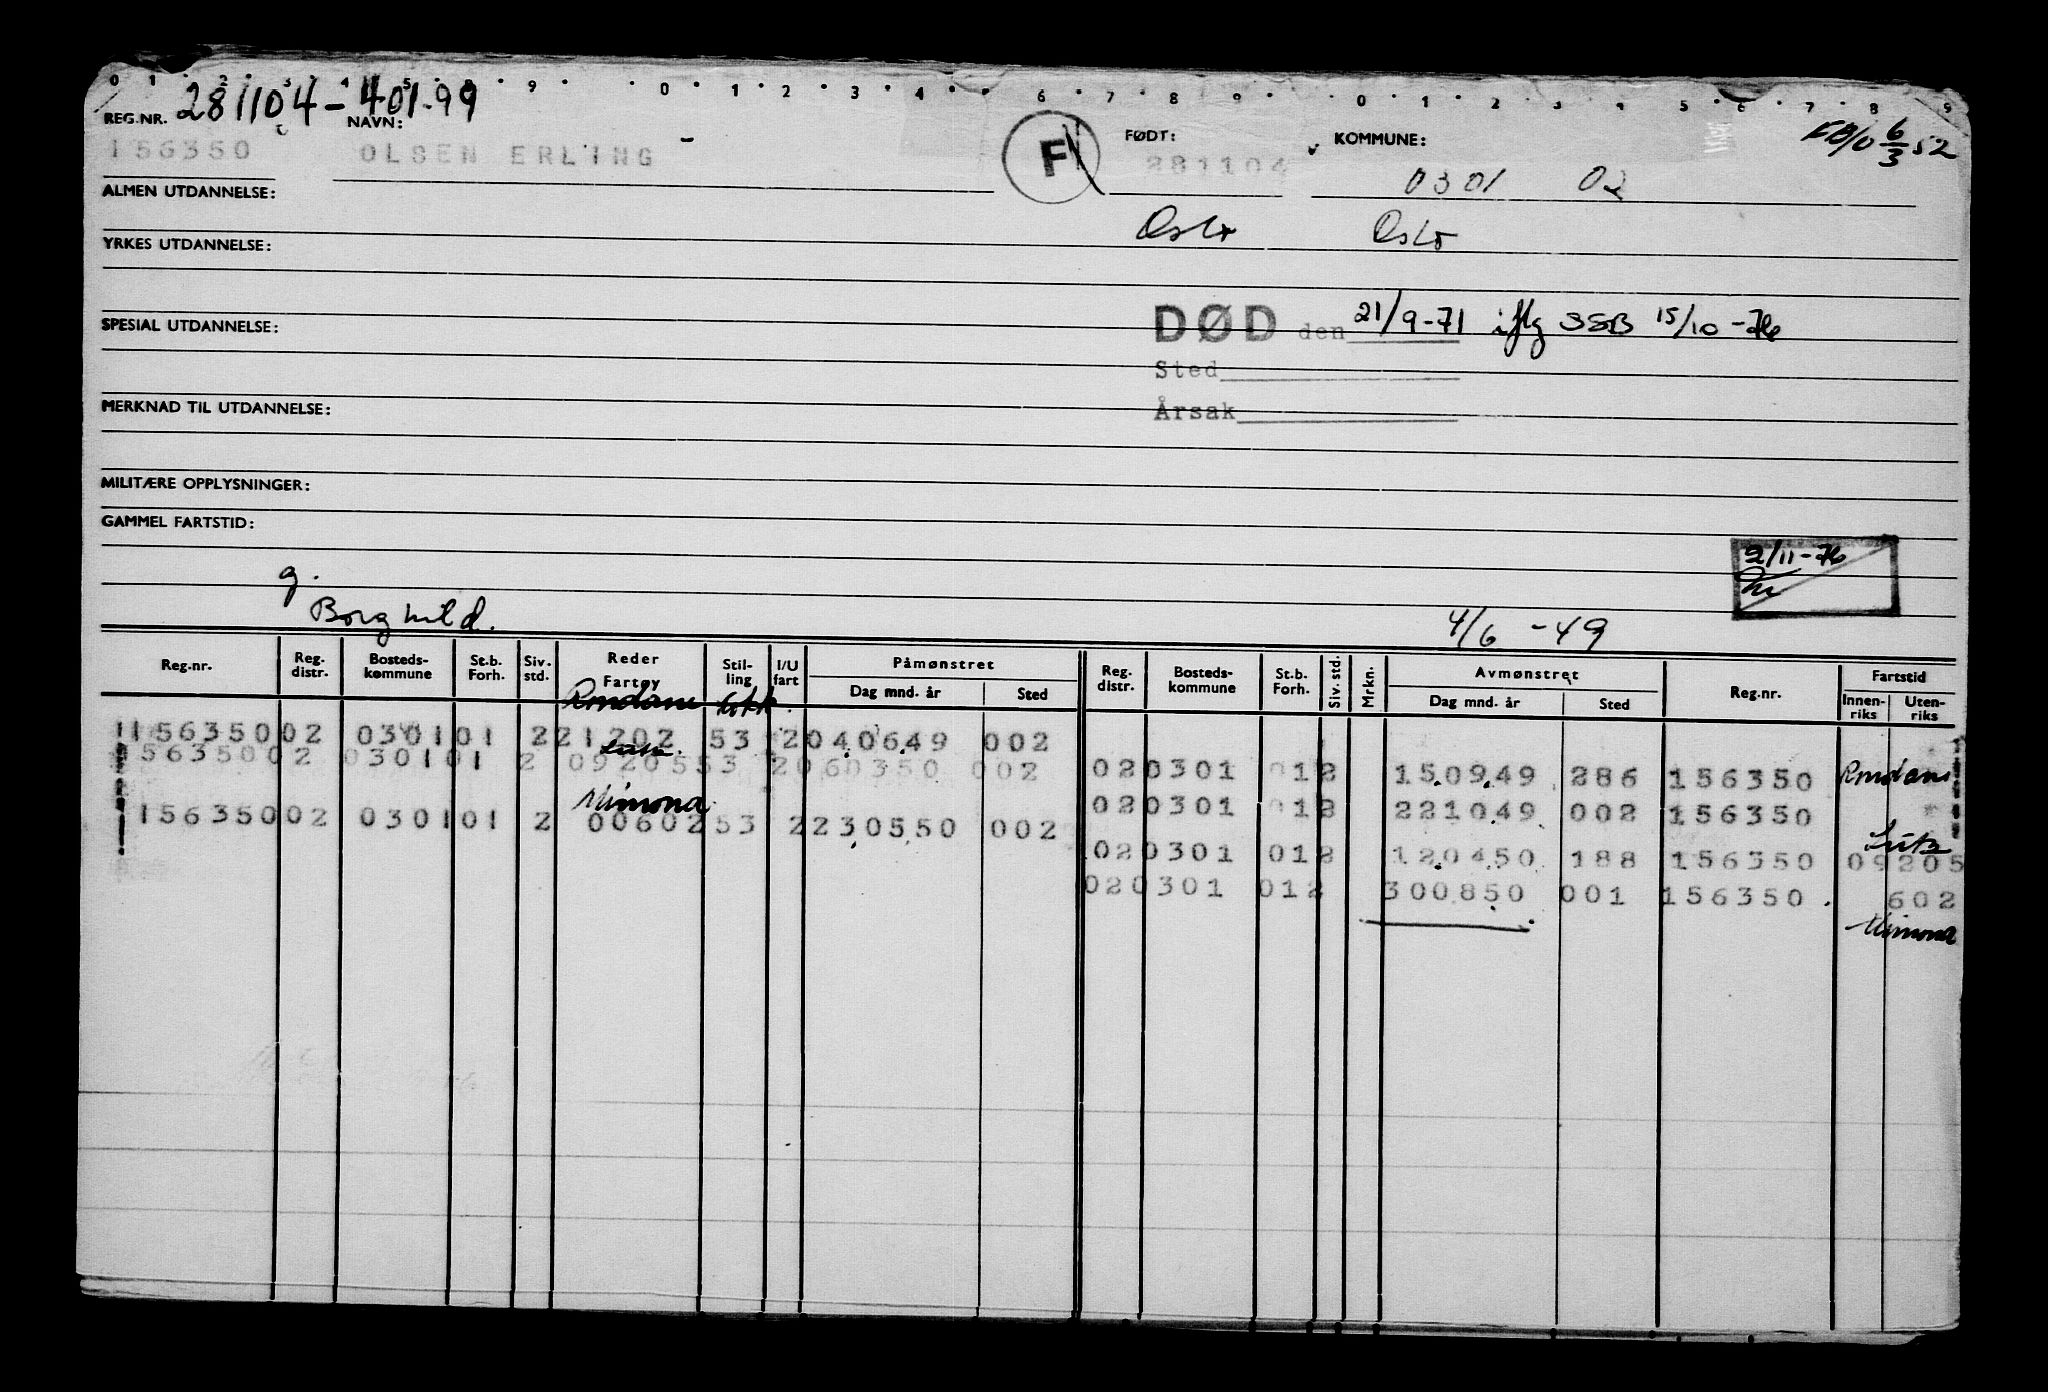 0 1 2 3 4 5 8 9 0 1 2 3 4 6 7 8 9 0 1 2 3 4 5 6 7 8 9
REG.NR. 281104-401.99 NAVN: FØDT: KOMMUNE: 6/3 52
156350 OLSEN ERLING F 281104 0301 02
ALMEN UTDANNELSE:
Oslo Oslo
YRKES UTDANNELSE:
DØD den 21/9-71 iflg SSB 15/10-76
SPESIAL UTDANNELSE:
Sted
MERKNAD TIL UTDANNELSE: Årsak
MILITÆRE OPPLYSNINGER:
GAMMEL FARTSTID:
2/11-76
g.
Borghild. 4/6 -49
Reg.nr. Reg. distr. Bosteds-kommune St.b. Forh. Siv. std. Reder Fartøy Stil-ling I/U fart Påmønstret Dag mnd. år Sted Reg. distr. Bosteds-kommune St.b. Forh. Siv. std. Mrkn. Avmønstret Dag mnd. år Sted Reg.nr. Fartstid Innen-riks Uten-riks
Rondane
156350 02 0301 01 2 21202 53 2 040649 002
156350 02 0301 01 2 09205 53 2 060350 002
02 0301 01 2 150949 286 156350 Rondane
Mimona
02 0301 01 2 221049 002 156350
156350 02 0301 01 2 00602 53 2 230550 002
02 0301 01 2 120450 188 156350 09205
02 0301 01 2 300850 001 156350 602
Mimona